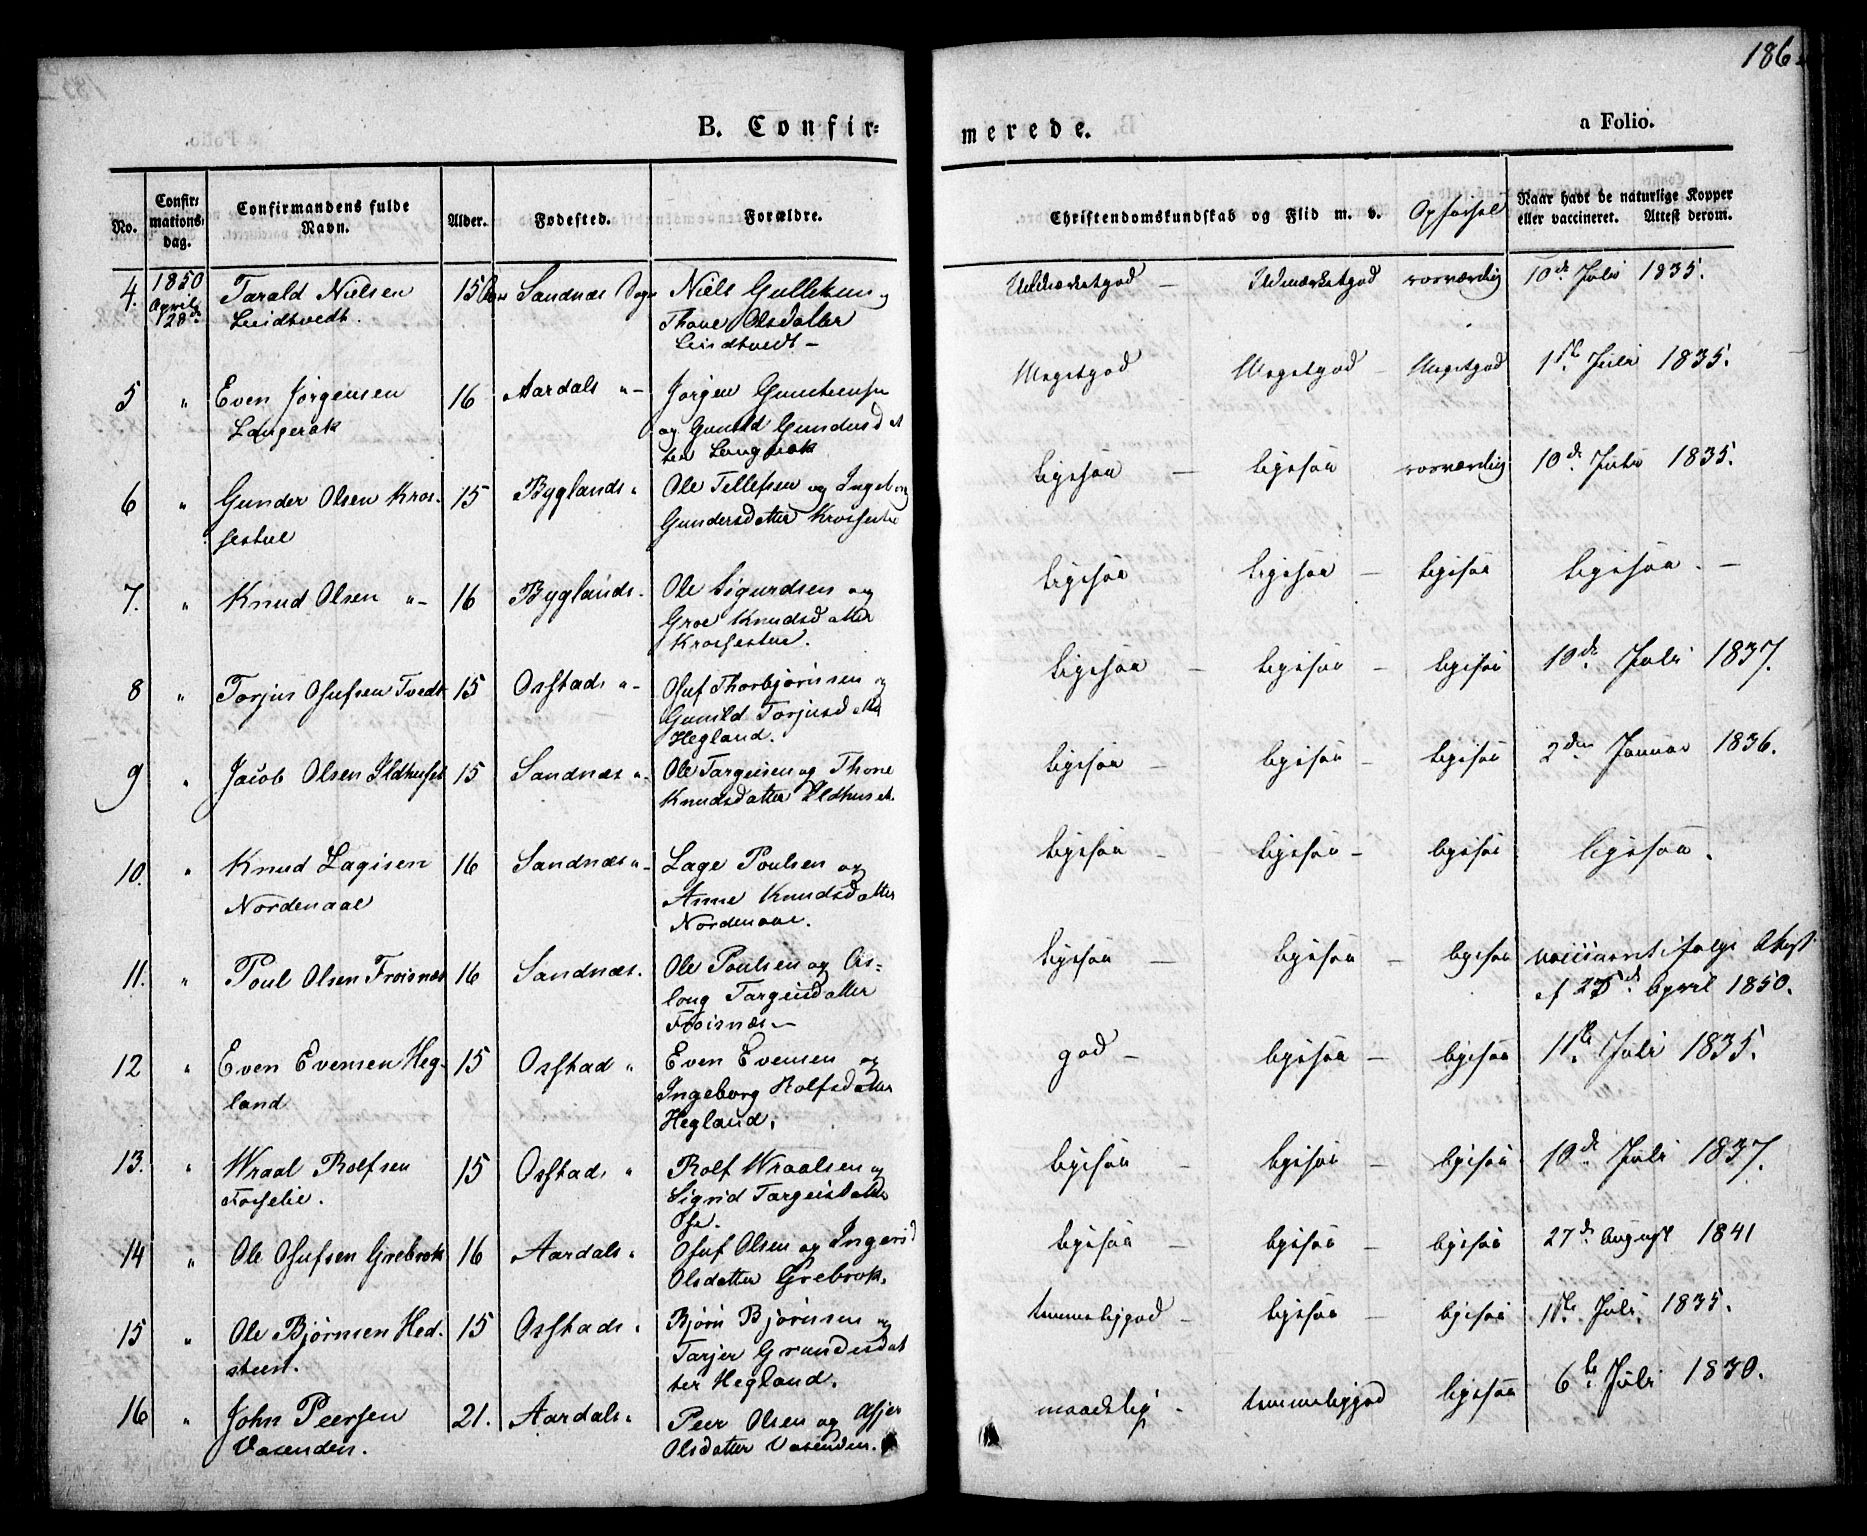 186
B. Confir=
merede.
a Folio.
No.
Confir=
mations=
dag.
Confirmandens fulde
Navn.
Alder.
Fødested.
Forældre.
Christendomskundskab og Flid m. v.
Opførsel
Naar havt de naturlige Kopper
eller vaccineret. Attest derom.
4. 1850 Tarald Nielsen 15 Sandnæs Sogn Niels Gulleksen og Udmærketgod — Udmærketgod rosværdig 10de Juli 1835.
April 28de
Thone Olsdatter
5 " Even Jørgensen 16 Aardals "— Jørgen Meget god Meget god — Meget god 1ste Juli 1835.
Langerak og Gunild Gundersdat
ter Langerak
6 " Gunder Olsen Kros- 15 Byglands " Ole Tellefsen og Ingeborg ligesaa — ligesaa rosværdig 10de Juli 1835.
sestue Gundersdatter Krossestue
7. " Knud Olsen "— 16 Byglands. Ole Sigurdsen og ligesaa ligesaa — ligesaa ligesaa. —
Groe Knudsdatter
Krossestue.
8 " Torjus Olufsen Tvedt 15 Osstads "— Oluf Thorbjørnsen og ligesaa — ligesaa — ligesaa 10de Juli 1837.
Gunild Torjusdatter
Hegland.
9 " Jacob Olsen Ildhuset 15 Sandnæs "- Ole Targeisen og Thone ligesaa — ligesaa — ligesaa 2den Januar 1836.
Knudsdatter Ildhuset.
10. " Knud Lagesen 16 Sandnæs "- Lage Poulsen og ligesaa — ligesaa — ligesaa ligesaa.
Nordenaae Anne Knudsdatter
Nordenaae.
11. " Poul Olsen Froisnæs 16 Sandnæs. Ole Poulsen og As= ligesaa — ligesaa — ligesaa vaccineret ifølge Attest
loug Targeisdatter af 25de April 1850.
Froisnæs. —
12 " Even Evensen Heg- 15 Osstad " Even Evensen og god — ligesaa — ligesaa 11te Juli 1835.
land Ingeborg Rolfsdatter
Hegland.
13. " Wraal Rolfsen 15 Osstads " Rolf Wraalsen og ligesaa — ligesaa — ligesaa 10de Juli 1837.
Fosselie. Sigrid Targeisdatter
Ose.
14 " Ole Olufsen Grebrok 16 Aardals " Oluf Olsen og Ingerid ligesaa — ligesaa — ligesaa 27de August 1841
Olsdatter Grebrok.
15 " Ole Bjørnsen Hed- 15 Osstads " Bjørn Bjørnsen og temmeligod — ligesaa — ligesaa 11te Juli 1835.
Tarjer
ter Hegland.
16 " John Peersen 21. Aardals " Peer Olsen og Asjer maadelig — temmeliggod ligesaa 6te Juli 1830.
Vasenden. Olsdatter Vasenden.